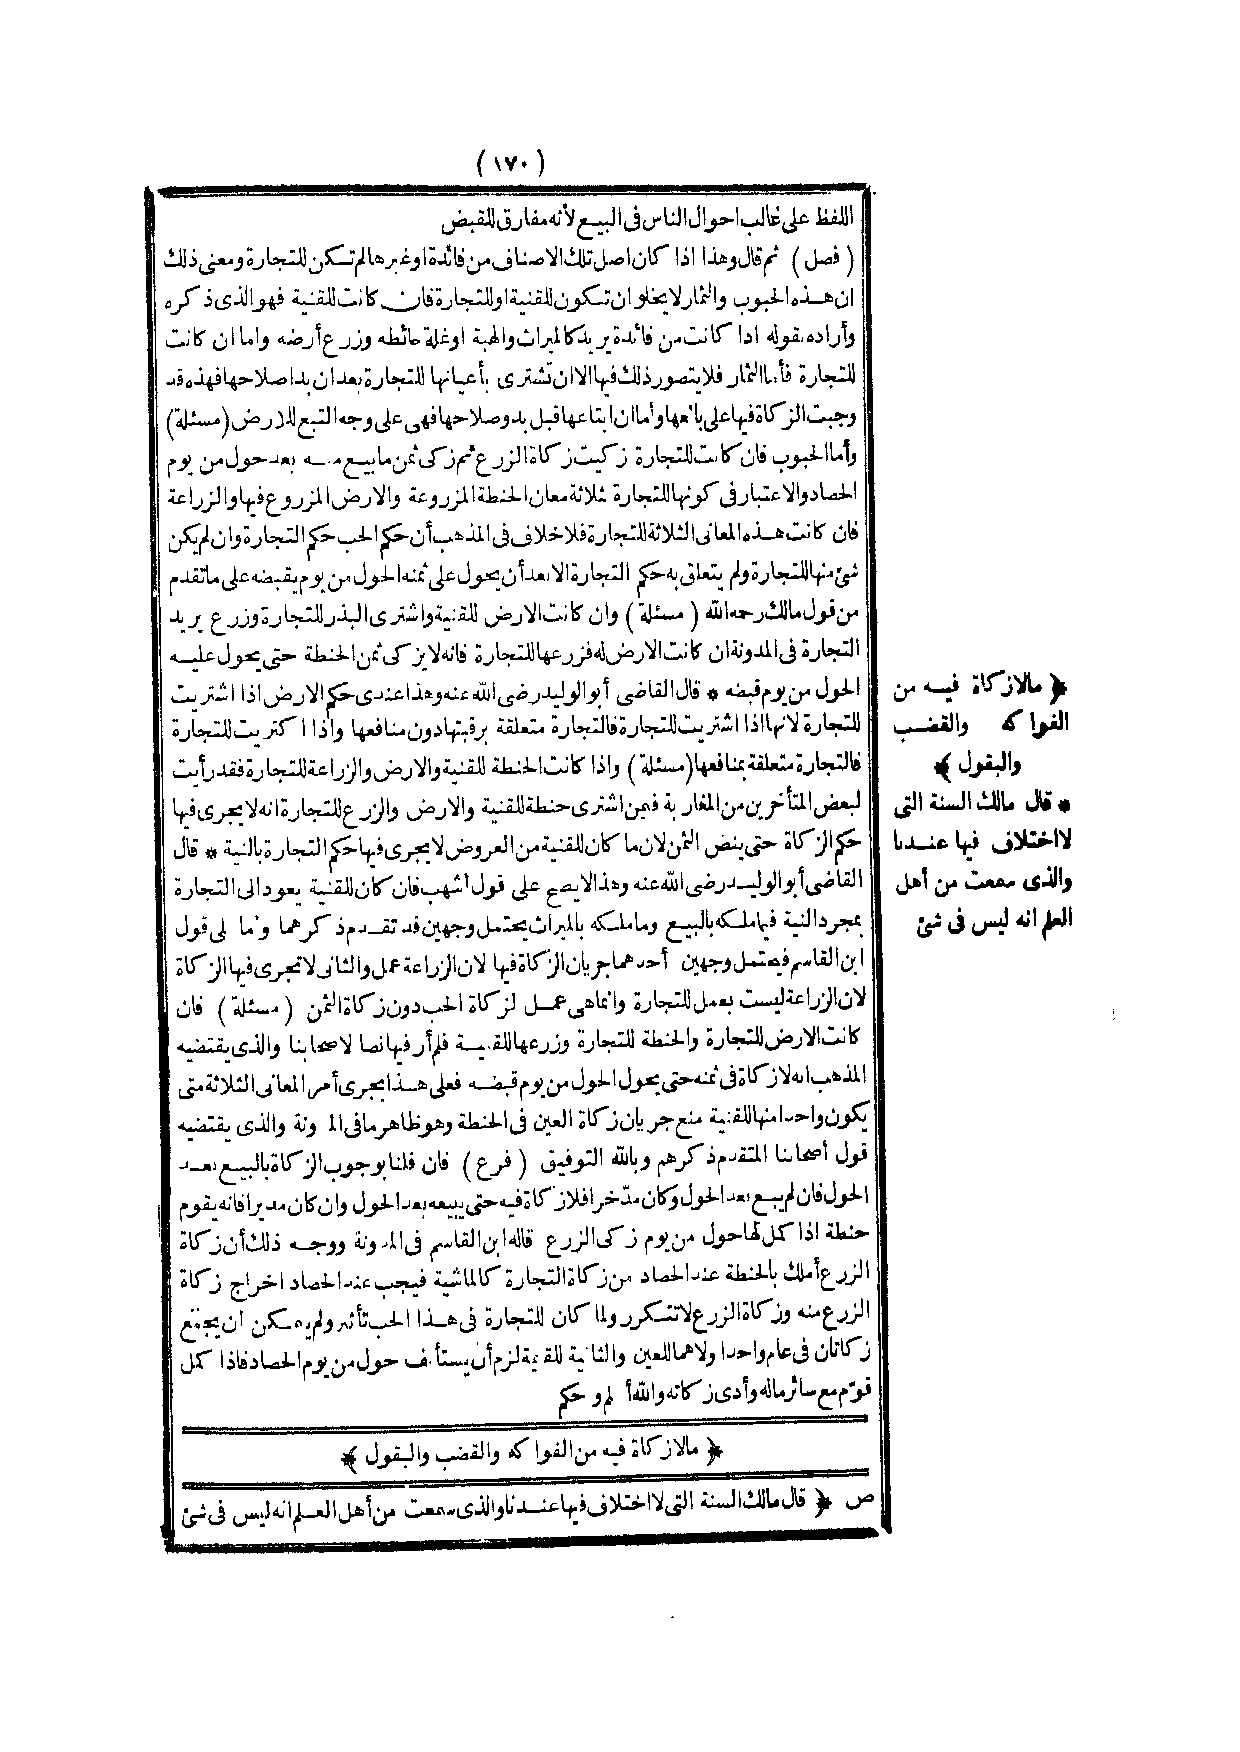 (١٧٠)
اللفظ على غالب احوال الناس فى البيع لأنه مفارق للقبض
( فصل ) ثم قال وهذا اذا كان اصل تلك الاصناف من فائدة اوغيرها لم تكن للتجارة ومعنى ذلك
ان هذه الحبوب والثمار لا يخلو ان تكون للقنية او للتجارة فان كانت للقنية فهو الذى ذكره
وأراده بقوله اذا كانت من فائدة يريد كالميراث والهبة اوغلة حائطه وزرع أرضه واما ان كانت
للتجارة فأما الثمار فلا يتصور ذلك فيها الا ان تشترى بأعيانها للتجارة بعد ان بدا صلاحها فهذه قد
وجبت الزكاة فيها على بائعها وأما ان ابتاعها قبل بدو صلاحها فهى على وجه التبع للارض (مسئلة)
وأما الحبوب فان كانت للتجارة زكيت زكاة الزرع ثم زكى ثمن ما بيع منه بعد حول من يوم
الحصاد والاعتبار فى كونها للتجارة ثلاثة معان الحنطة المزروعة والارض المزروع فيها والزراعة
فان كانت هذه المعانى الثلاثة للتجارة فلا خلاف فى المذهب أن حكم الحب حكم التجارة وان لم يكن
شئ منها للتجارة ولم يتعلق به حكم التجارة الا بعد أن يحول على ثمنه الحول من يوم يقبضه على ما تقدم
من قول مالك رحمه الله ( مسئلة ) وان كانت الارض للقنية واشترى البذر للتجارة وزرع يريد
التجارة فى المدونة ان كانت الارض له فزرعها للتجارة فانه لا يزكى ثمن الحنطة حتى يحول عليه
الحول من يوم قبضه * قال القاضى أبو الوليد رضى الله عنه وهذا عندى حكم الارض اذا اشتريت
للتجارة لانها اذا اشتريت للتجارة فالتجارة متعلقة برقبتها دون منافعها واذا اكتريت للتجارة
فالتجارة متعلقة بمنافعها (مسئلة) واذا كانت الحنطة للقنية والارض والزراعة للتجارة فقد رأيت
لبعض المتأخرين من المغاربة فيمن اشترى حنطة للقنية والارض والزرع للتجارة انه لا يجرى فيها
حكم الزكاة حتى ينض الثمن لان ما كان للقنية من العروض لا يجرى فيها حكم التجارة بالنية * قال
القاضى أبو الوليد رضى الله عنه وهذا لا يصح على قول أشهب فان كان للقنية يعود الى التجارة
بمجرد النية فيما ملكه بالبيع وما ملكه بالميراث يحتمل وجهين قد تقدم ذكرهما وأما على قول
ابن القاسم فيحتمل وجهين أحدهما جريان الزكاة فيها لان الزراعة عمل والثانى لا تجرى فيها الزكاة
لان الزراعة ليست بعمل للتجارة وانما هى عمل لزكاة الحب دون زكاة الثمن ( مسئلة ) فان
كانت الارض للتجارة والحنطة للتجارة وزرعها للقنية فلم أر فيها نصا لاصحابنا والذى يقتضيه
المذهب انه لا زكاة فى ثمنه حتى يحول الحول من يوم قبضه فعلى هذا يجرى أمر المعانى الثلاثة متى
يكون واحدا منها للقنية منع جريان زكاة العين فى الحنطة وهو ظاهر ما فى المدونة والذى يقتضيه
قول أصحابنا المتقدم ذكرهم وبالله التوفيق ( فرع ) فان قلنا بوجوب الزكاة بالبيع بعد
الحول فان لم يبع بعد الحول وكان مدّخرا فلا زكاة فيه حتى يبيعه بعد الحول وان كان مديرا فانه يقوم
حنطة اذا كمل لها حول من يوم زكى الزرع قاله ابن القاسم فى المدونة ووجه ذلك أن زكاة
الزرع أملك بالحنطة عند الحصاد من زكاة التجارة كالماشية فيجب عند الحصاد اخراج زكاة
الزرع منه وزكاة الزرع لا تتكرر ولما كان للتجارة فى هذا الحب تأثير ولم يمكن ان يجتمع
زكاتان فى عام واحد اولاهما للعين والثانية للقنية لزم أن يستأنف حول من يوم الحصاد فاذا كمل
قوّم مع سائر ماله وأدى زكاته والله أعلم وحكم
﴿ مالا زكاة فيه من الفواكه والقضب والبقول ﴾
ص ﴿ قال مالك السنة التى لا اختلاف فيها عندنا والذى سمعت من أهل العلم انه ليس فى شئ
﴿ مالا زكاة فيه من
الفواكه والقضب
والبقول ﴾
* قال مالك السنة التى
لا اختلاف فيها عندنا
والذى سمعت من أهل
العلم انه ليس فى شئ